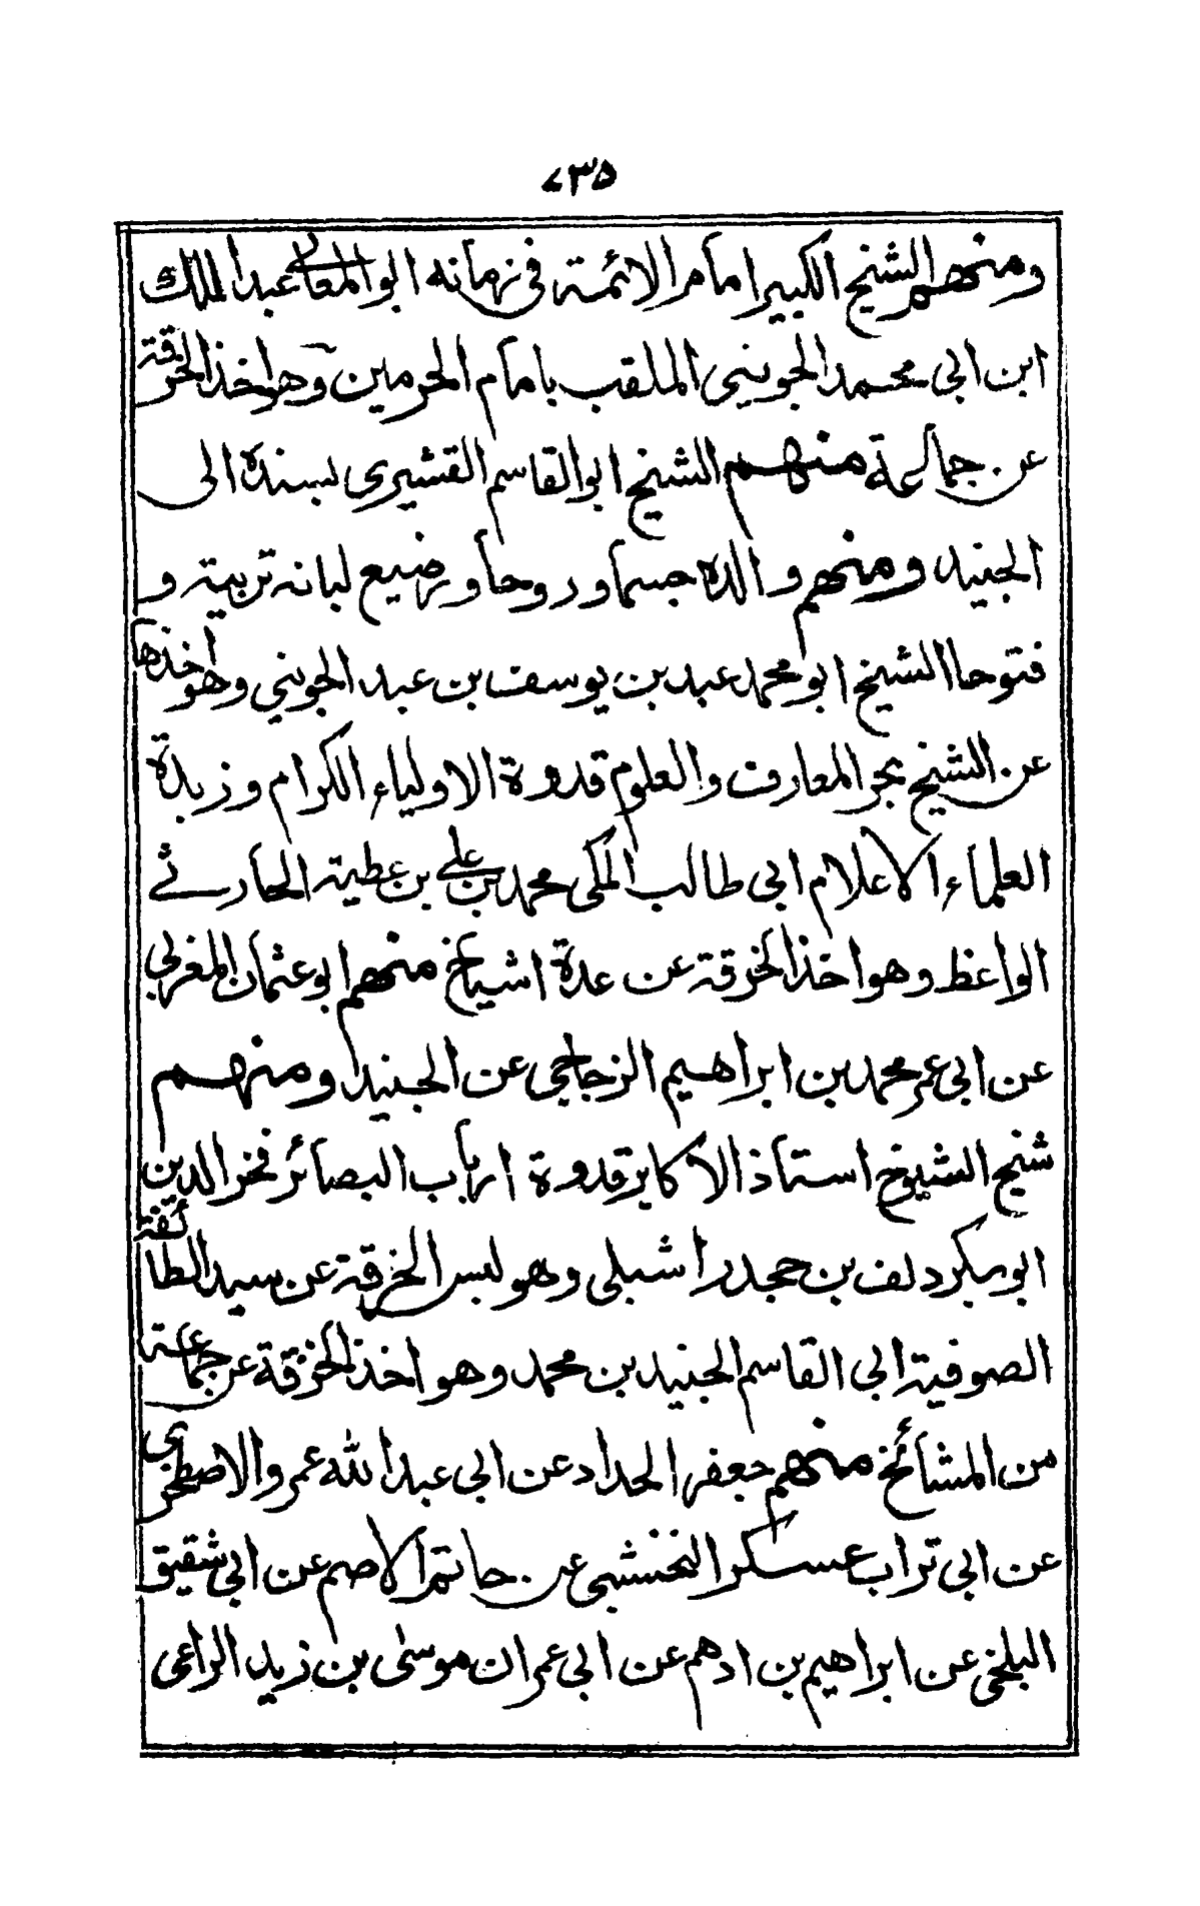 ٧٣٥
ومنهم الشيخ الكبير امام الائمة في زمانه ابو المعالى عبد الملك
ابن ابي محمد الجويني الملقب بامام الحرمين وهو اخذ الخرقة
عن جماعة منهم الشيخ ابو القاسم القشيرى بسنده الى
الجنيد ومنهم والده جسما وروحا ورضيع لبانه تربية و
فتوحا الشيخ ابو محمد عبد بن يوسف بن عبد الجويني وهو اخذها
عن الشيخ بحر المعارف والعلوم قدوة الاولياء الكرام وزبدة
العلماء الاعلام ابي طالب المكى محمد بن على بن عطية الحارثي
الواعظ وهو اخذ الخرقة عن عدة اشياخ منهم ابو عثمان المغربي
عن ابي عمر محمد بن ابراهيم الزجاجي عن الجنيد ومنهم
شيخ الشيوخ استاذ الاكابر قدوة ارباب البصائر فخر الدين
ابو بكر دلف بن حجدر اشبلى وهو لبس الخرقة عن سيد الطائفة
الصوفية ابي القاسم الجنيد بن محمد وهو اخذ الخرقة عن جماعة
من المشائخ منهم جعفر الحداد عن ابي عبد الله عمر والاصطخرى
عن ابي تراب عسكر النخشبى عن حاتم الاصم عن ابي شقيق
البلخى عن ابراهيم بن ادهم عن ابي عمران موسى بن زيد الراعى